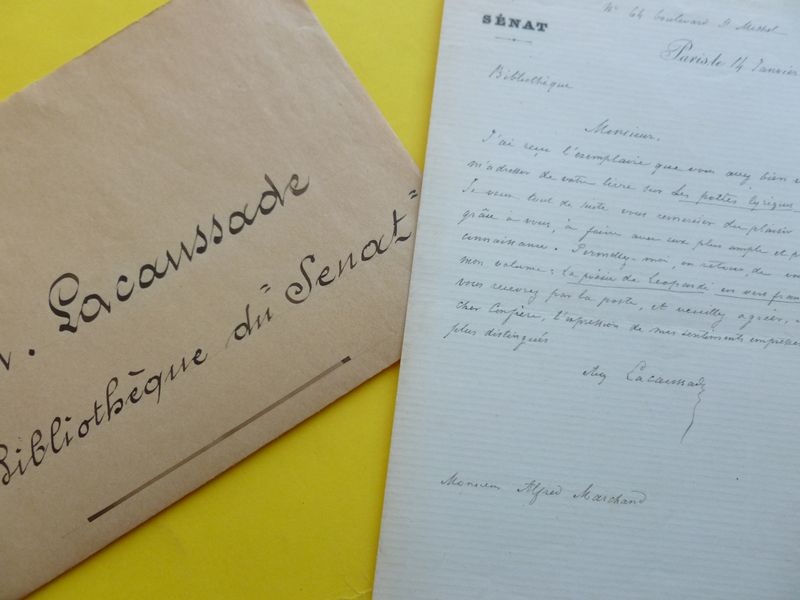 A. Lacaussade
Bibliothèque du Senat
SÉNAT
N° 64 boulevard St Michel
Paris, le 14 Janvier
Bibliothèque
Monsieur,
J'ai reçu l'exemplaire que vous avez bien
m'adresser de votre livre sur Les poëtes lyriques
Je veux tout de suite vous remercier du plaisir
grâce à vous, à faire avec eux plus ample et
connaissance. Permettez-moi, en retour de
mon volume : la poésie de Leopardi en vers
vous recevrez par la poste, et veuillez agréer,
cher Confrère, l'expression de mes sentiments
plus distingués
Aug Lacaussade
Monsieur Alfred Marchand